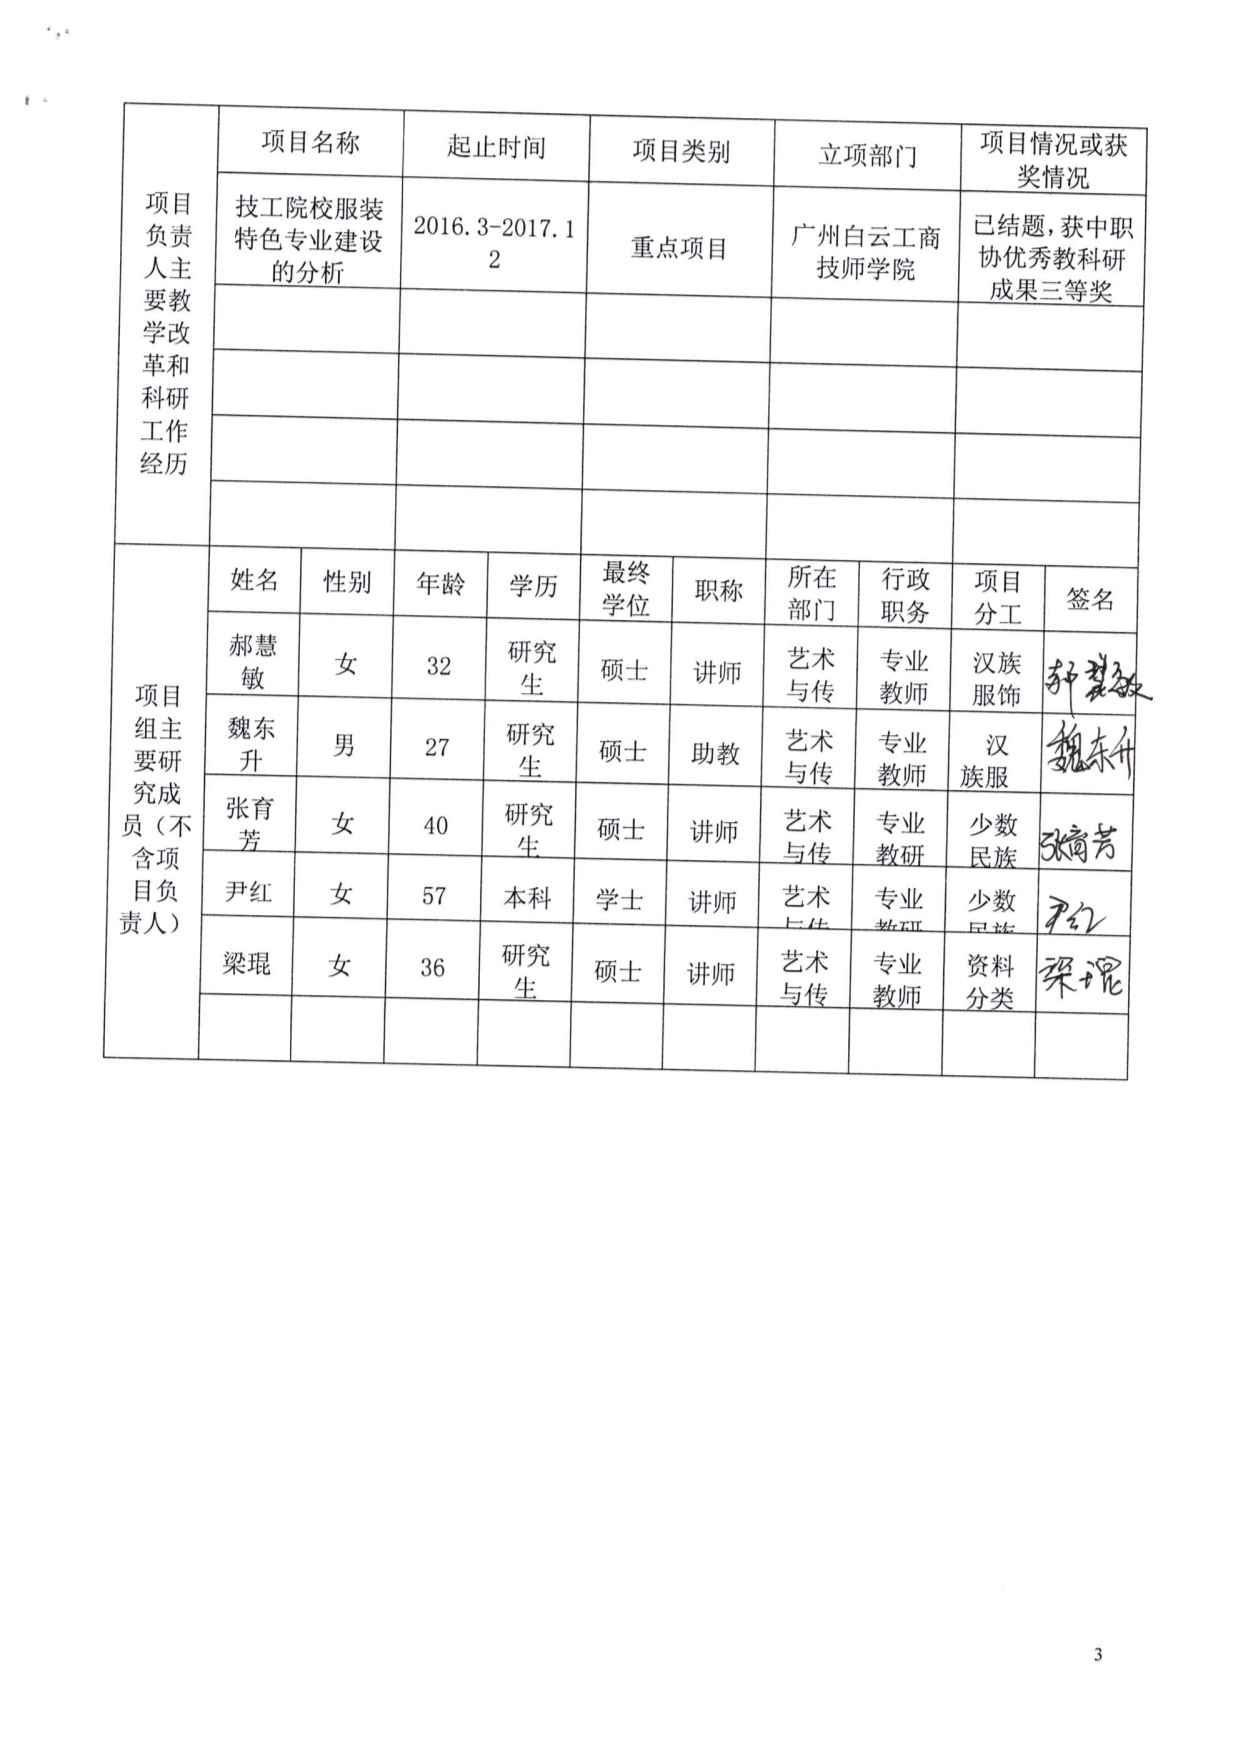 项目名称 起止时间 项目类别 立项部门 项目情况或获
奖情况
项目
负责
人主
要教
学改
革和
科研
工作
经历
技工院校服装
特色专业建设
的分析
2016.3-2017.1
2
重点项目
广州白云工商
技师学院
已结题，获中职
协优秀教科研
成果三等奖
项目
组主
要研
究成
员（不
含项
目负
责人）
姓名 性别 年龄 学历 最终
学位
职称 所在
部门
行政
职务
项目
分工
签名
郝慧
敏
女 32 研究
生
硕士 讲师 艺术
与传
专业
教师
汉族
服饰
郝慧敏
魏东
升
男 27 研究
生
硕士 助教 艺术
与传
专业
教师
汉
族服
魏东升
张育
芳
女 40 研究
生
硕士 讲师 艺术
与传
专业
教研
少数
民族
张育芳
尹红 女 57 本科 学士 讲师 艺术
与传
专业
教研
少数
民族
尹红
梁琨 女 36 研究
生
硕士 讲师 艺术
与传
专业
教师
资料
分类
梁琨
3